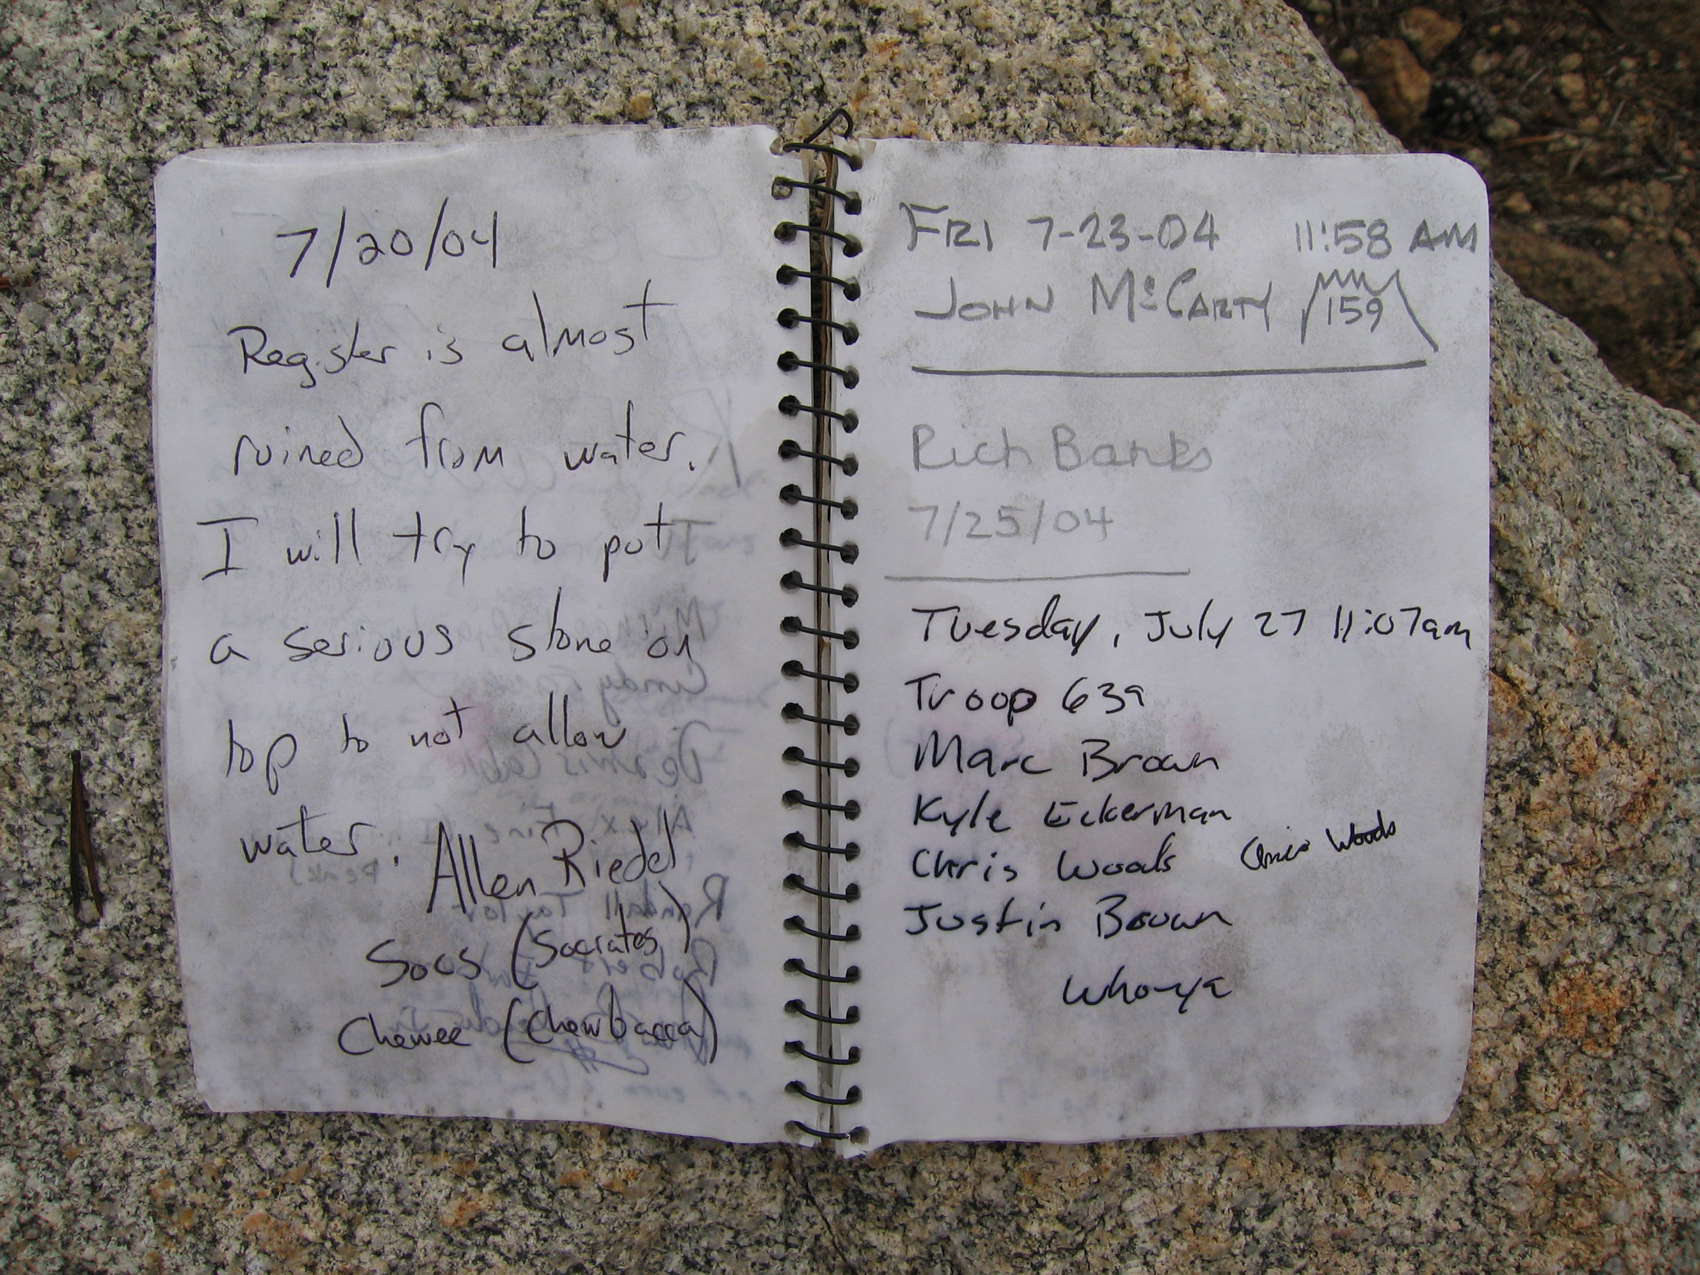 7/20/04
Register is almost
ruined from water.
I will try to put
a serious stone on
top to not allow
water.
Allen Riedel
Socs (Socrates)
Chewee (Chewbacca)
FRI 7-23-04 11:58 AM
JOHN McCARTY 159
Rich Banks
7/25/04
Tuesday, July 27 11:07am
Troop 639
Marc Brown
Kyle Eckerman
Chris Woods Chris Woods
Justin Brown
Who-ya